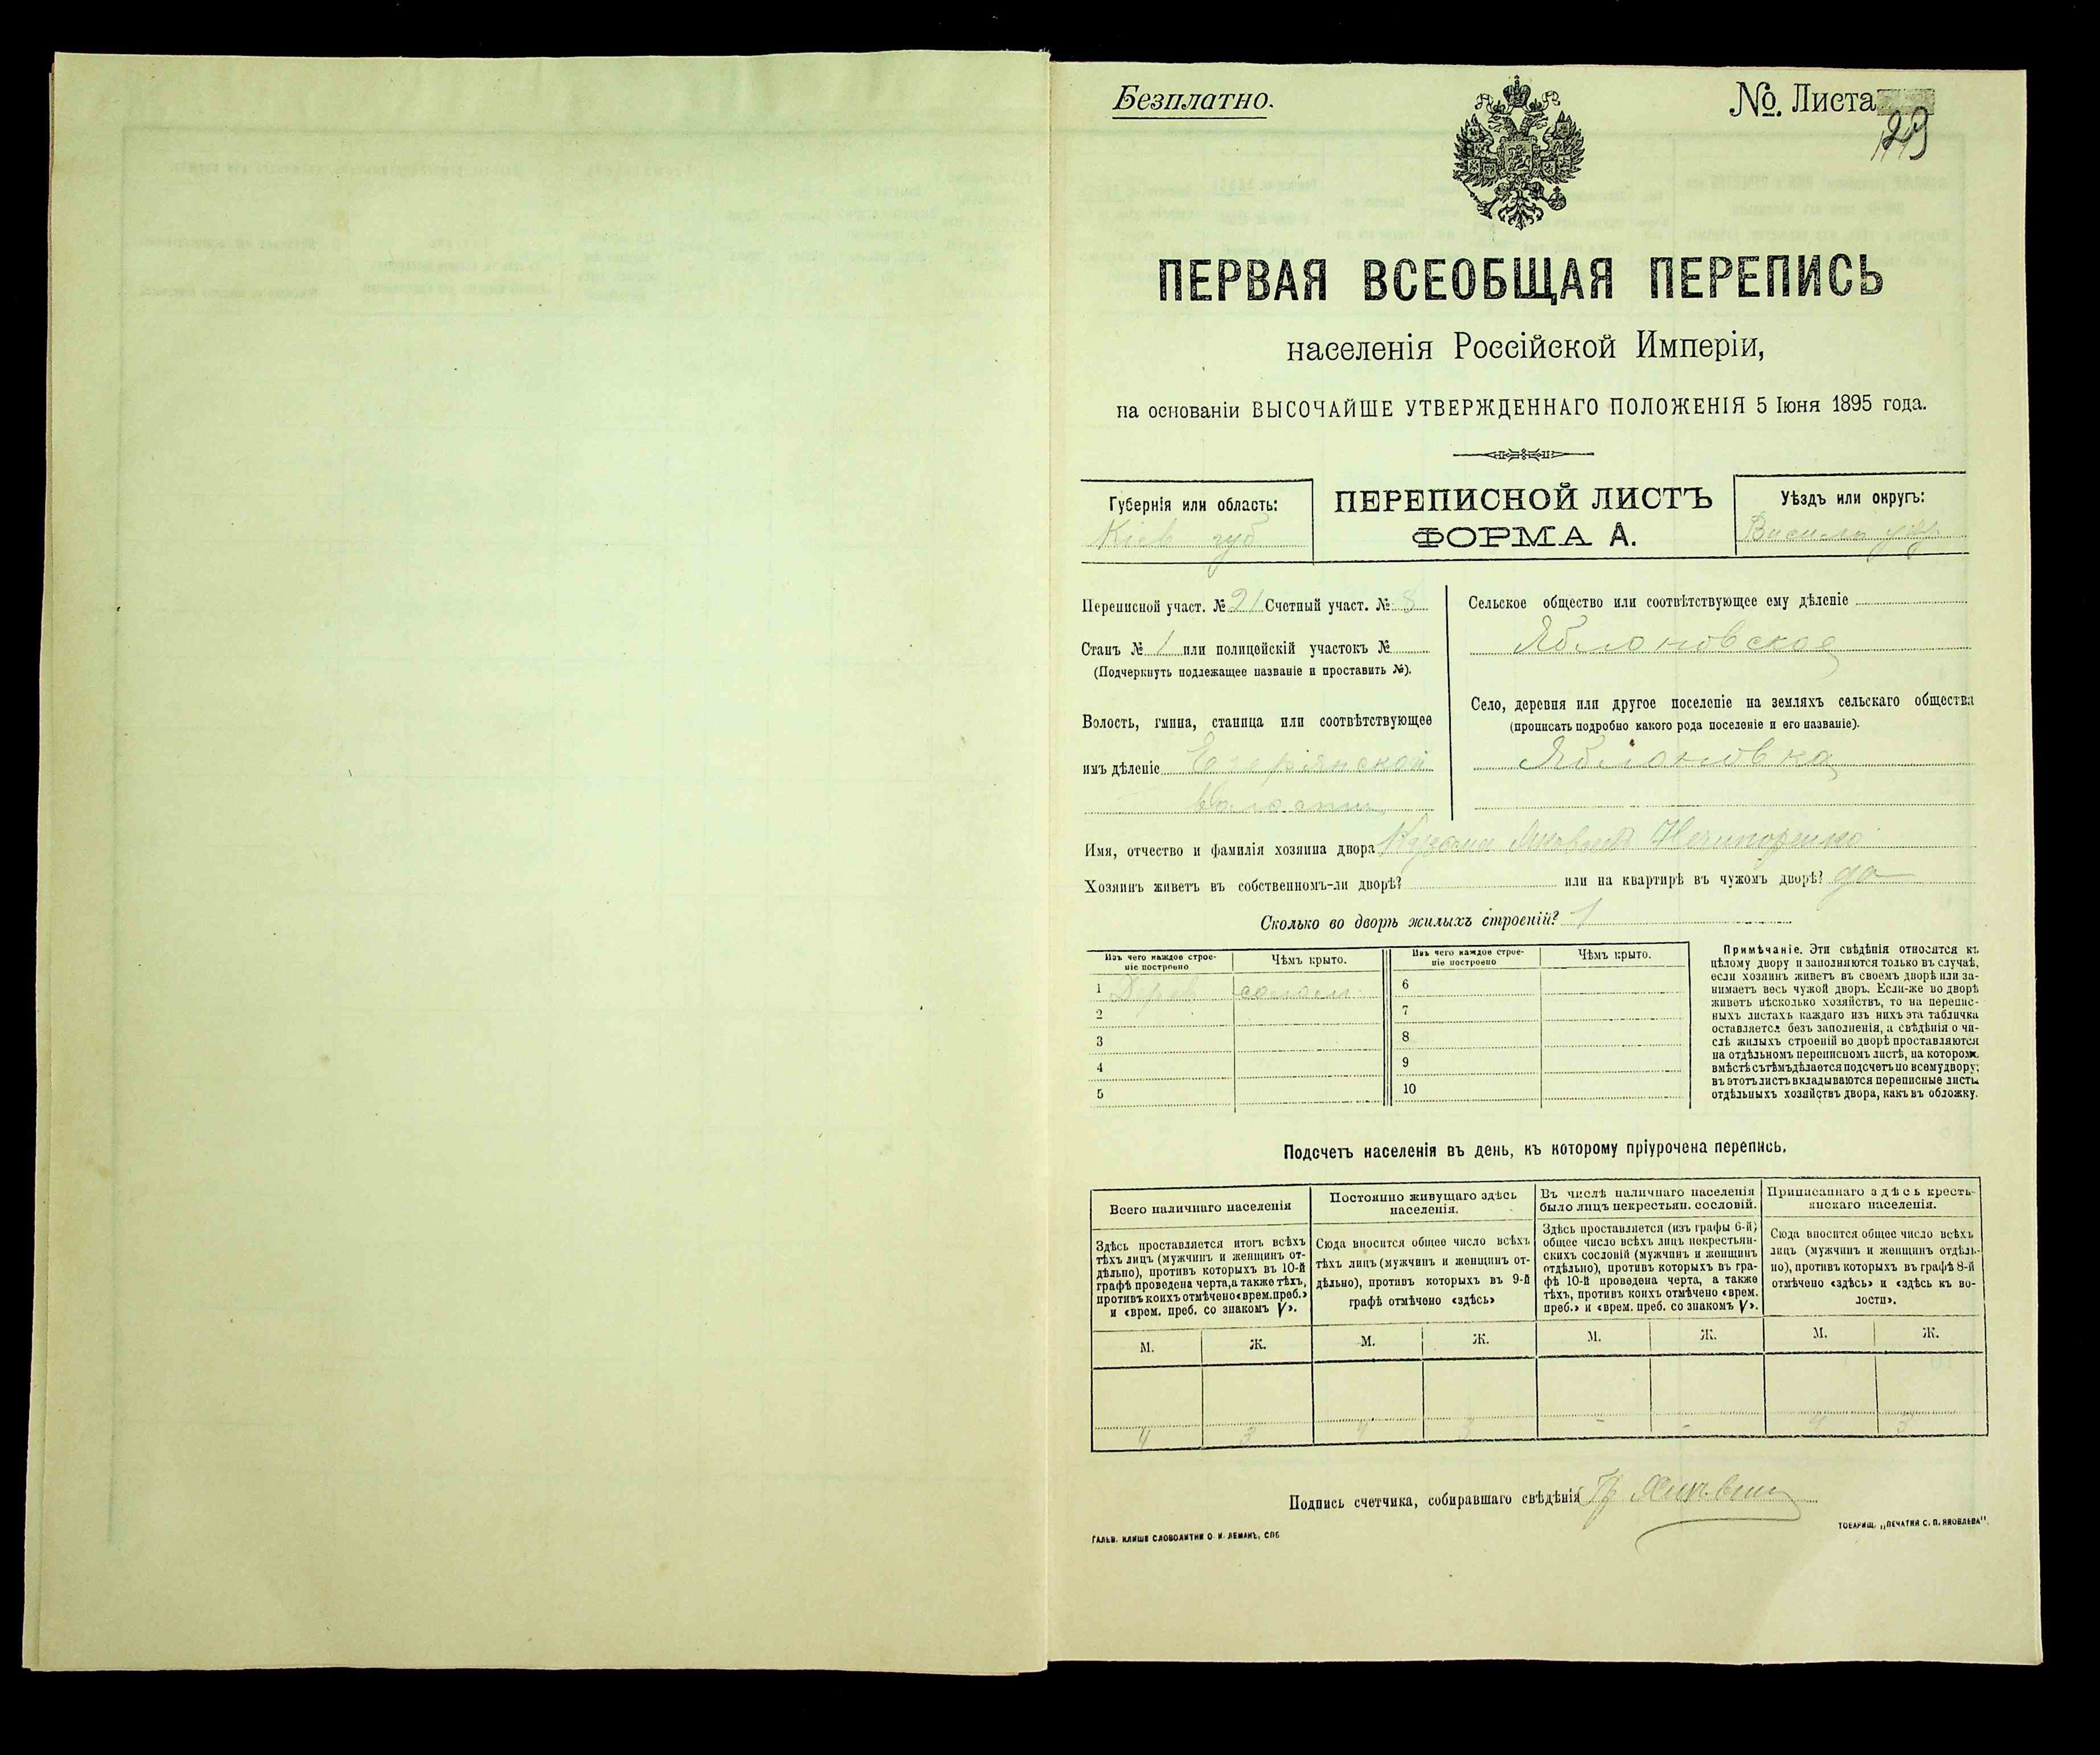 Безплатно.
№. Листа
29
ПЕРВАЯ ВСЕОБЩАЯ ПЕРЕПИСЬ
населенія Россійской Имперіи,
на основаніи ВЫСОЧАЙШЕ УТВЕРЖДЕННАГО ПОЛОЖЕНІЯ 5 Іюня 1895 года.
Губернія или область:
Кіев губ
ПЕРЕПИСНОЙ ЛИСТЪ
ФОРМА А.
Уѣздъ или округъ:
Василь
Переписной участ. № 21 Счетный участ. № 8
Станъ № 1 или полицейскій участокъ №
(Подчеркнуть подлежащее названіе и проставить №).
Волость, гмина, станица или соотвѣтствующее
имъ дѣленіе Езерянской
волости
Сельское общество или соотвѣтствующее ему дѣленіе
Яблоновское
Село, деревня или другое поселеніе на земляхъ сельскаго общества
(прописать подробно какого рода поселеніе и его названіе).
Яблоновка
Имя, отчество и фамилія хозяина двора Нечипоренко
Хозяинъ живетъ въ собственномъ-ли дворѣ? или на квартирѣ въ чужомъ дворѣ? да
Сколько во дворѣ жилыхъ строеній? 1
Изъ чего каждое строе-
ніе построено
Чѣмъ крыто.
Изъ чего каждое строе-
ніе построено
Чѣмъ крыто.
1 Дерев солом
2
3
4
5
6
7
8
9
10
Примѣчаніе. Эти свѣдѣнія относятся къ
цѣлому двору и заполняются только въ случаѣ,
если хозяинъ живетъ въ своемъ дворѣ или за-
нимаетъ весь чужой дворъ. Если-же во дворѣ
живетъ нѣсколько хозяйствъ, то на перепис-
ныхъ листахъ каждаго изъ нихъ эта табличка
оставляется безъ заполненія, а свѣдѣнія о чи-
слѣ жилыхъ строеній во дворѣ проставляются
на отдѣльномъ переписномъ листѣ, на которомъ
вмѣстѣ съ тѣмъ дѣлается подсчетъ по всему двору;
въ этотъ листъ вкладываются переписные листы
отдѣльныхъ хозяйствъ двора, какъ въ обложку.
Подсчетъ населенія въ день, къ которому пріурочена перепись.
Всего наличнаго населенія
Здѣсь проставляется итогъ всѣхъ
тѣхъ лицъ (мужчинъ и женщинъ от-
дѣльно), противъ которыхъ въ 10-й
графѣ проведена черта, а также тѣхъ,
противъ коихъ отмѣчено «врем. преб.»
и «врем. преб. со знакомъ V».
Постоянно живущаго здѣсь
населенія.
Сюда вносится общее число всѣхъ
тѣхъ лицъ (мужчинъ и женщинъ от-
дѣльно), противъ которыхъ въ 9-й
графѣ отмѣчено «здѣсь»
Въ числѣ наличнаго населенія
было лицъ некрестьян. сословій.
Здѣсь проставляется (изъ графы 6-й)
общее число всѣхъ лицъ некрестьян-
скихъ сословій (мужчинъ и женщинъ
отдѣльно), противъ которыхъ въ гра-
фѣ 10-й проведена черта, а также
тѣхъ, противъ коихъ отмѣчено «врем.
преб.» и «врем. преб. со знакомъ V».
Приписаннаго здѣсь кресть-
янскаго населенія.
Сюда вносится общее число всѣхъ
лицъ (мужчинъ и женщинъ отдѣль-
но), противъ которыхъ въ графѣ 8-й
отмѣчено «здѣсь» и «здѣсь къ во-
лости».
М. Ж. М. Ж. М. Ж. М. Ж.
4 3 4 3 - - 4 3
Подпись счетчика, собиравшаго свѣдѣнія
ГАЛЬВ. КЛИШЕ СЛОВОЛИТНИ О. И. ЛЕМАНЪ, СПБ.
ТОВАРИЩ. „ПЕЧАТНЯ С. П. ЯКОВЛЕВА".